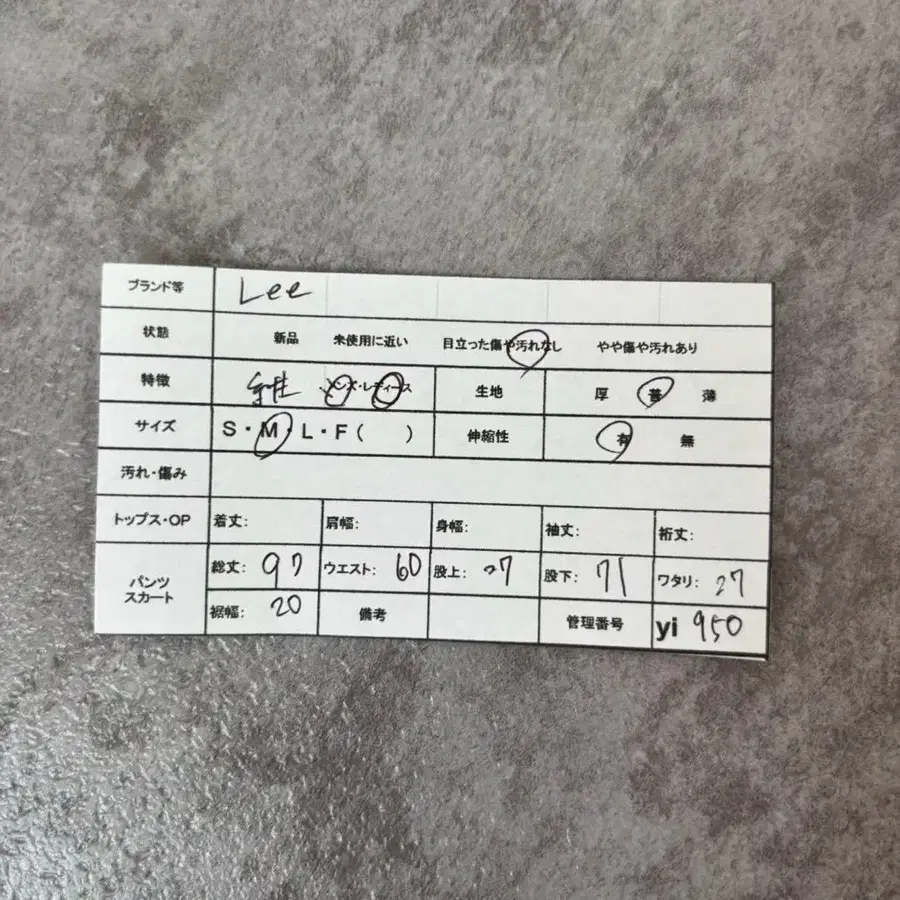 ブランド等 Lee
状態 新品 未使用に近い 目立った傷や汚れなし やや傷や汚れあり
特徴 メンズ・レディース 生地 厚 普 薄
サイズ S・M・L・F( ) 伸縮性 有 無
汚れ・傷み
トップス・OP 着丈: 肩幅: 身幅: 袖丈: 裄丈:
パンツ
スカート
総丈: 97 ウエスト: 60 股上: 27 股下: 71 ワタリ: 27
裾幅: 20 備考 管理番号 yi 950